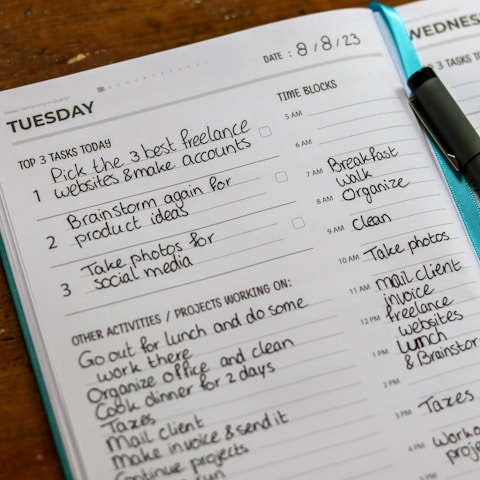 DATE : 8/8/23
TUESDAY
TOP 3 TASKS TODAY
1 Pick the 3 best freelance
websites & make accounts
2 Brainstorm again for
product ideas
3 Take photos for
social media
OTHER ACTIVITIES / PROJECTS WORKING ON:
Go out for lunch and do some
work there
Organize office and clean
Cook dinner for 2 days
Taxes
Mail client
Make invoice & send it
Continue projects
run
TIME BLOCKS
5 AM
6 AM
7 AM Breakfast
walk
8 AM Organize
9 AM Clean
10 AM Take photos
11 AM mail client
invoice
12 PM freelance
websites
1 PM Lunch
& Brainstor
2 PM
3 PM Taxes
4 PM Worko
proje
WEDNES
TOP 3 TASKS TO